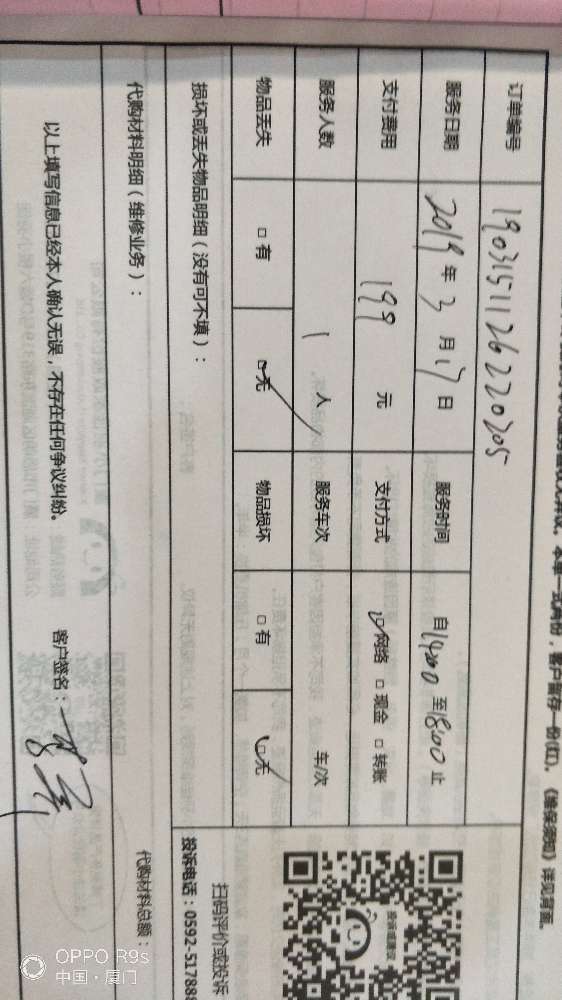 本单一式两份，客户留存一份(红)。《维保须知》详见背面。
订单编号 19031511262220205
服务日期 2019年3月17日 服务时间 自14:00至18:00止
支付费用 199元 支付方式 ☑网络 □现金 □转账
服务人数 1人 服务车次 车/次
物品丢失 □有 ☑无 物品损坏 □有 ☑无
损坏或丢失物品明细（没有可不填）：
扫码评价或投诉
投诉电话：0592-517888
代购材料明细（维修业务）：
代购材料总额：
以上填写信息已经本人确认无误，不存在任何争议纠纷。 客户签名：
OPPO R9s
中国·厦门